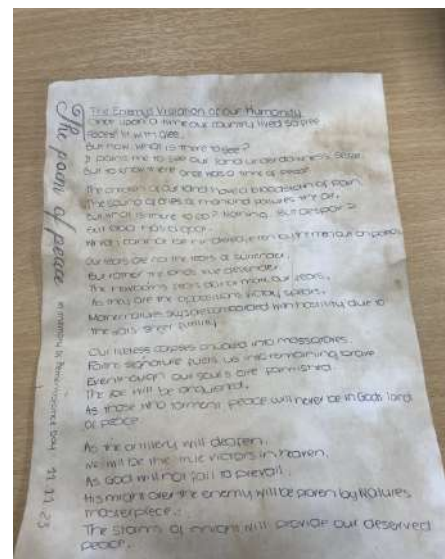 The poem of peace in memory to Remembrance Day 11.11.23
The Enemy's Visitation of our Humanity
Once upon a time our country lived so free
Faces lit with glee.
But now what is there to see?
It pains me to see our land under darkness' seige.
But to know there once was a time of peace
The children of our land have a bloodstain of pain
The sound of cries of mankind pollutes the air,
But what is there to do? Nothing. But despair?
But God has a goal.
Which cannot be hindered, even by the men out on patrol.
Our tears are not the tears of surrender,
But rather the lands true defender.
The newborns tears do not mark our fears,
As they are the oppositions victory spears,
Mother natures skys are compared with hostility due to
the wars sheer futility
Our lifeless corpses ploughed into massacres.
Pains signature fuels us into remaining brave
Eventhough our souls are famished.
The foe will be anquished,
As those who torment peace will never be in Gods land
of peace
As the artillery will deafen,
We will be the true victors in heaven,
As God will not fail to prevail.
His might over the enemy will be proven by Natures
masterpiece.
The stains of midnight will provide our deserved
peace.